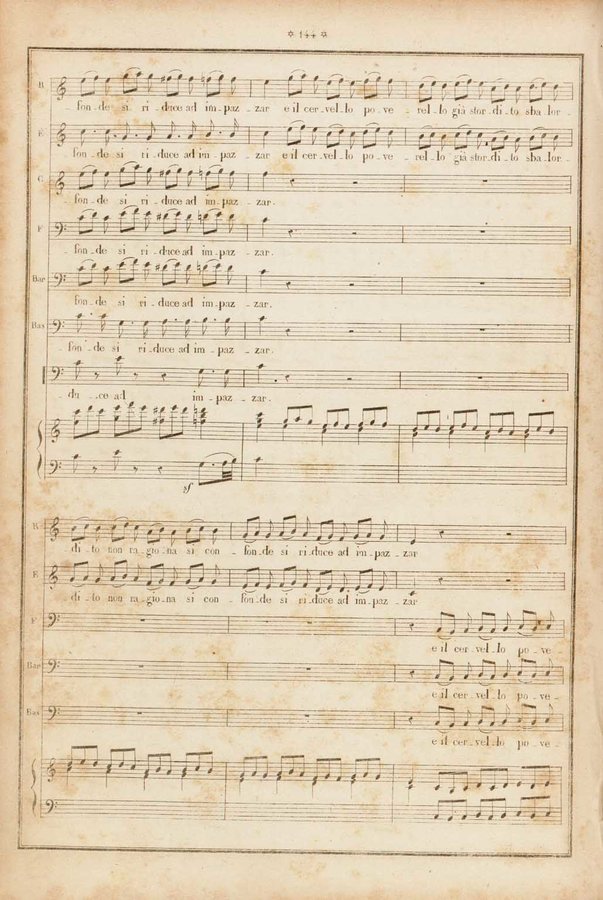 ✡ 144 ✡
R
fon_de si ri_duce ad im_paz _ zar e il cer_vel_lo po_ve _ rel_lo già stor_di_to sba lor_
E
fon_de si ri_duce ad im_paz _ zar e il cer_vel_lo po_ve _ rel_lo già stor_di_to sba lor_
C
fon_de si ri_duce ad im_paz _ zar.
F
fon_de si ri_duce ad im_paz _ zar.
Bar
fon_de si ri_duce ad im_paz _ zar.
Bas
fon_de si ri_duce ad im_paz _ zar.
du_ce ad im_paz _ zar.
sf
R
di_to non ra_gio_na si con _ fon_de si ri_duce ad im_paz_zar
E
di_to non ra_gio_na si con _ fon_de si ri_duce ad im_paz_zar
F
e il cer_vel_lo po_ve_
Bar
e il cer_vel_lo po_ve_
Bas
e il cer_vel_lo po_ve_